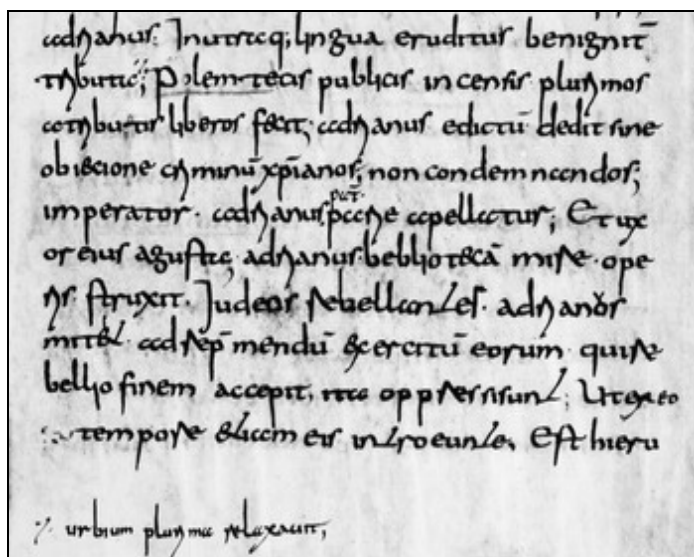 adrianus; In utraq; lingua eruditus benignit̄
tributis; Polem tecis publicis incensis plurimos
cotributis liberos fecit; adrianus edictū dedit sine
obiecione criminū xp̄ianos; non condemnandos;
pat̄
imperator · adrianus patrie apellatus; Et ux
or eius agustę; adrianus bebliotecā mire ope
ris struxit. Judeos rebellantes · adrianos
mitet ad rep̄mendū exercitū eorum quire
bellio finem accepit, ita oppressi sunt; Ut ex eo
tempore etiam eis introeunte. Est hieru
urbium plurima relaxauit;